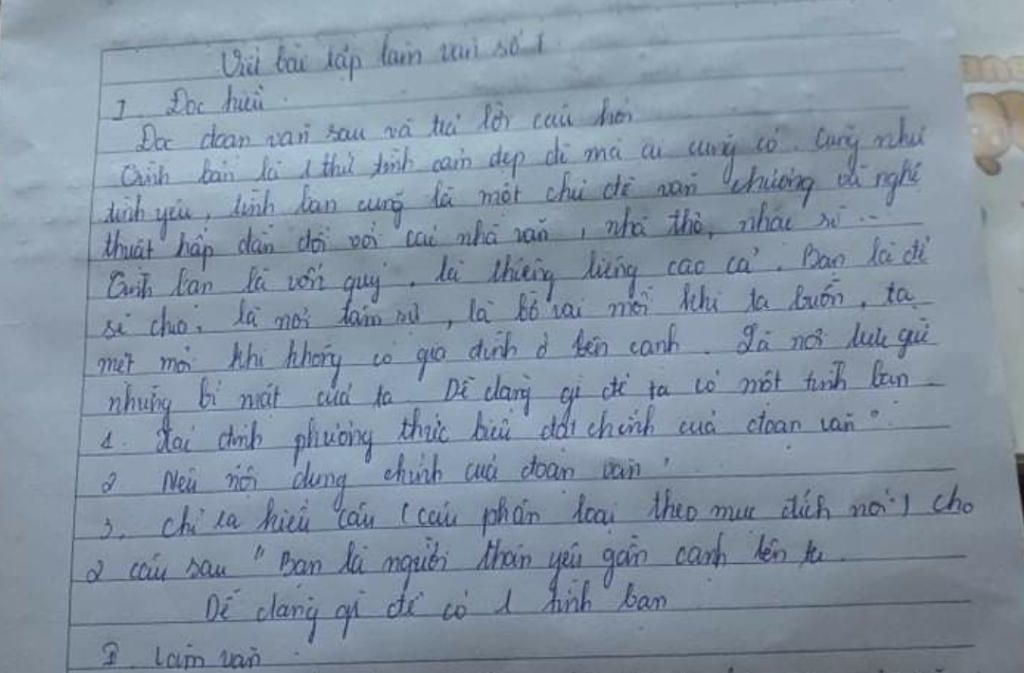 Viết bài tập làm văn số 1
I Đọc hiểu.
Đọc đoạn văn sau và trả lời câu hỏi
Tình bạn là 1 thứ tình cảm đẹp đẽ mà ai cũng có. Cũng như
tình yêu, tình bạn cũng là một chủ đề văn chương và nghệ
thuật hấp dẫn đối với các nhà văn, nhà thơ, nhạc sĩ ...
Tình bạn là vốn quý, là thiêng liêng cao cả. Bạn là để
sẻ chia, là nơi tâm sự, là bờ vai mỗi khi ta buồn, ta
mệt mỏi khi không có gia đình ở bên cạnh. Là nơi lưu giữ
những bí mật của ta Dễ dàng gì để ta có một tình bạn.
1. Xác định phương thức biểu đạt chính của đoạn văn?
2 Nêu nội dung chính của đoạn văn?
3. chỉ ra kiểu câu (câu phân loại theo mục đích nói) cho
2 câu sau " Bạn là người thân yêu gần cạnh bên ta.
Dễ dàng gì để có 1 tình bạn
II Làm văn.